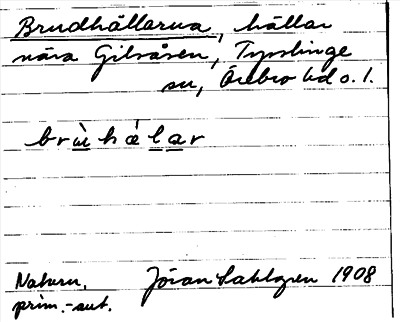 Brudhällarna, hällar
nära Gilsåsen, Tysslinge
sn, Örebro hd o. l.
brùhälar
Naturn. Jöran Sahlgren 1908
prim.-aut.